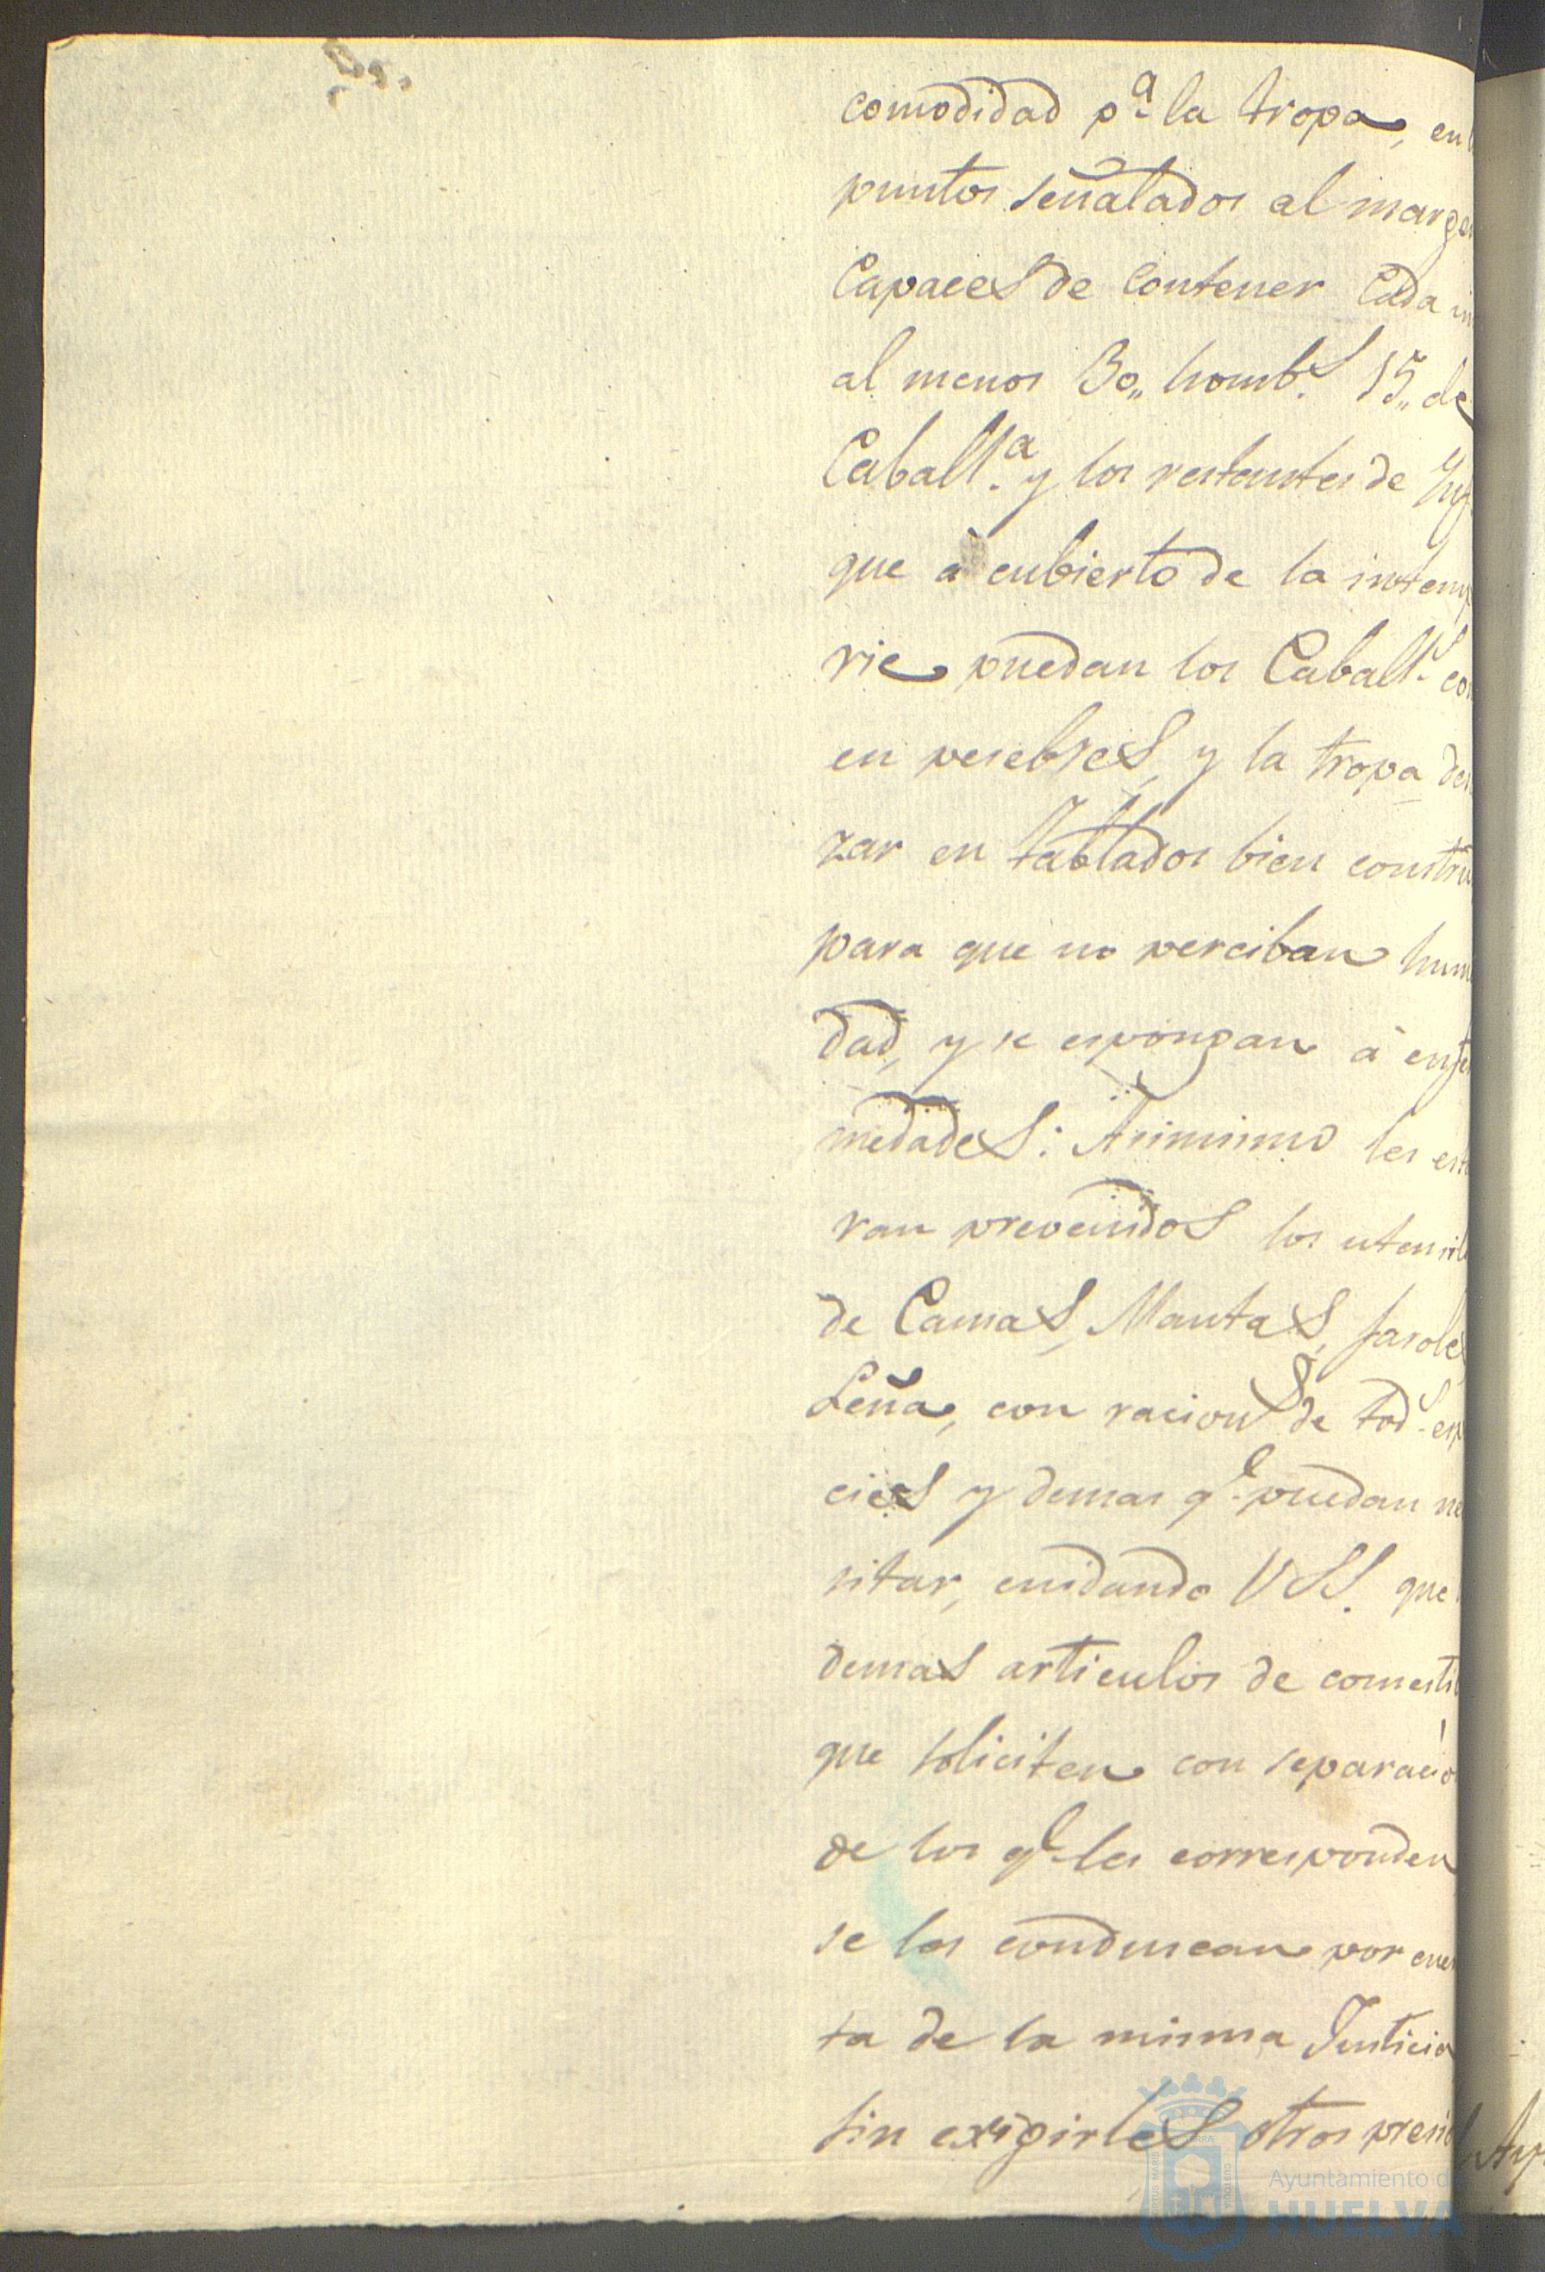 comodidad p.ª la tropa, en
puntos señalados al margen
Capaces de Contener Cada
al menos 30,, homb.s 15,, de
Caball.ª y los restantes de Inf
que à cubierto de la intemp
rie puedan los Caball.s co
en pesebres, y la tropa des
zar en tablados bien constru
para que no perciban hum
dad, y se espongan à enfer
medades: Asimismo les est
ran prevenidos los utensil
de Camas, Mantas, faroles
Leña, con racion.s de tod.s esp
cies y demas q.e puedan ne
sitar, cuidando VSS. que
demas articulos de comesti
que soliciten con separació
de los q.e les corresponden
se los conduscan por cuen
ta de la misma Justicia
sin exigirles otros preci
Ayuntamiento de
HUELVA